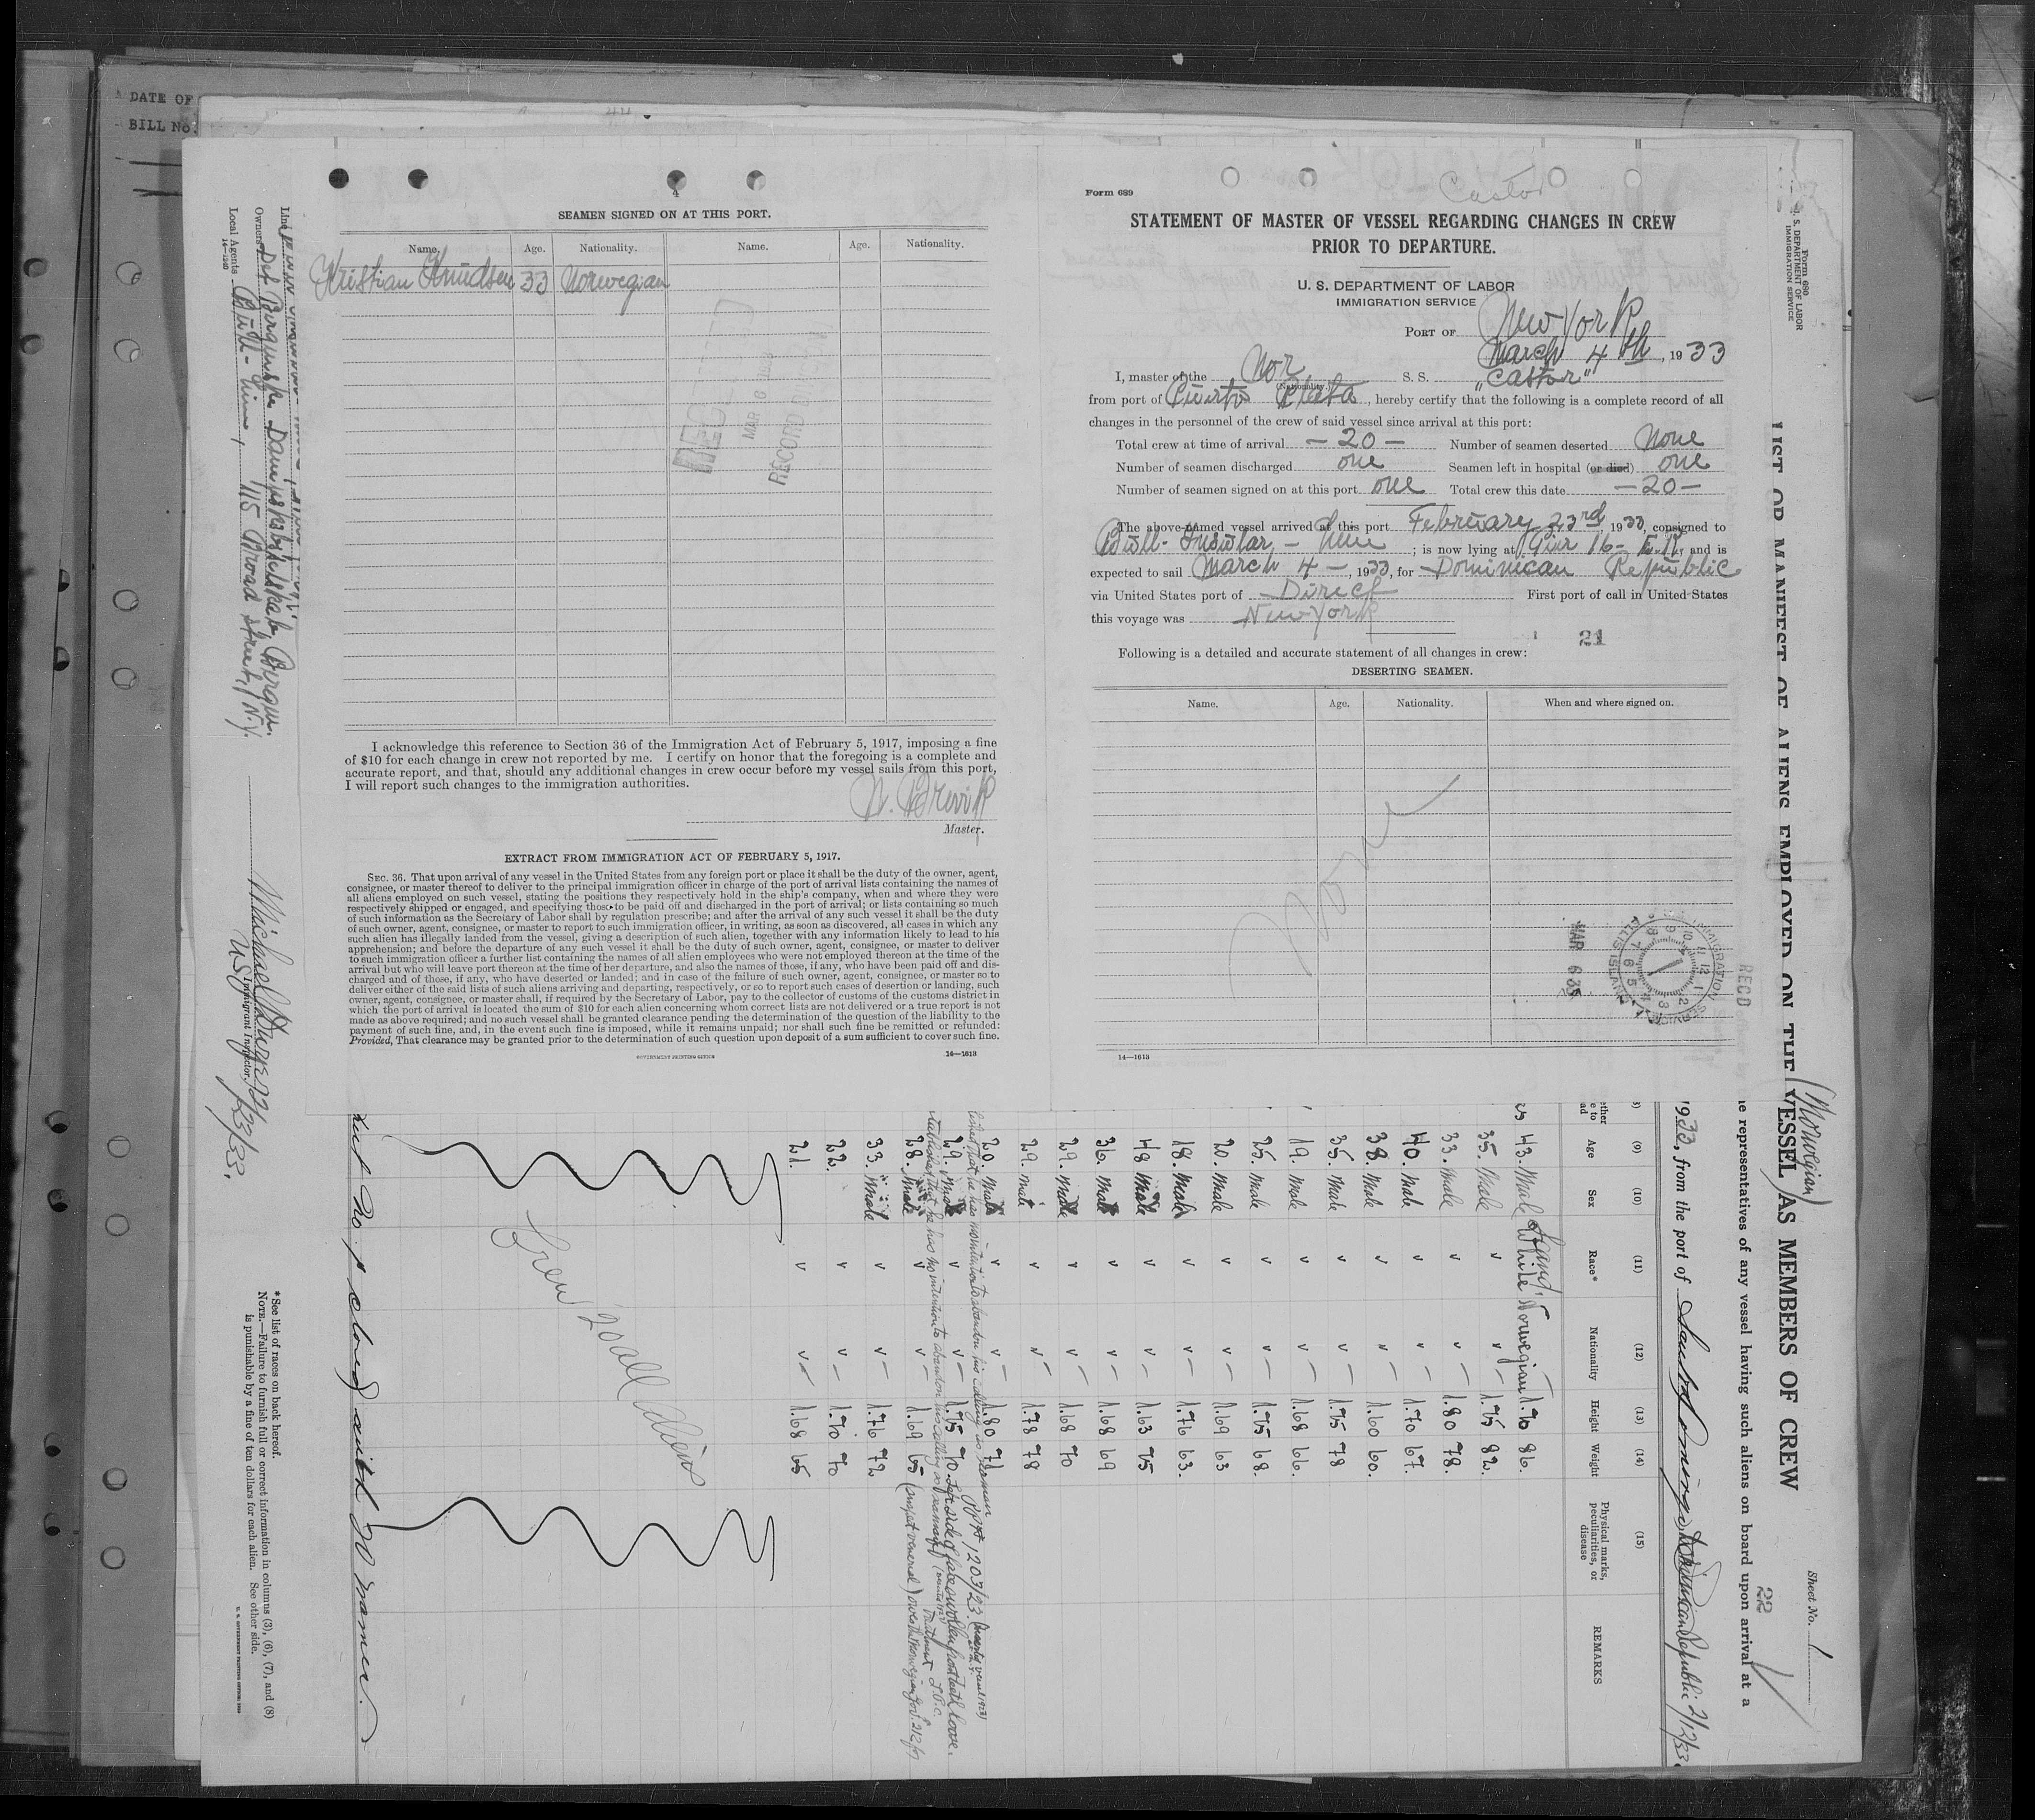 DATE OF
BILL No.
4
SEAMEN SIGNED ON AT THIS PORT.
Name. Age. Nationality. Name. Age. Nationality.
Kristian Knudsen 33 Norwegian
RECORD DIVISION
I acknowledge this reference to Section 36 of the Immigration Act of February 5, 1917, imposing a fine
of $10 for each change in crew not reported by me. I certify on honor that the foregoing is a complete and
accurate report, and that, should any additional changes in crew occur before my vessel sails from this port,
I will report such changes to the immigration authorities.
N. Brevik
Master.
EXTRACT FROM IMMIGRATION ACT OF FEBRUARY 5, 1917.
SEC. 36. That upon arrival of any vessel in the United States from any foreign port or place it shall be the duty of the owner, agent,
consignee, or master thereof to deliver to the principal immigration officer in charge of the port of arrival lists containing the names of
all aliens employed on such vessel, stating the positions they respectively hold in the ship's company, when and where they were
respectively shipped or engaged, and specifying those to be paid off and discharged in the port of arrival; or lists containing so much
of such information as the Secretary of Labor shall by regulation prescribe; and after the arrival of any such vessel it shall be the duty
of such owner, agent, consignee, or master to report to such immigration officer, in writing, as soon as discovered, all cases in which any
such alien has illegally landed from the vessel, giving a description of such alien, together with any information likely to lead to his
apprehension; and before the departure of any such vessel it shall be the duty of such owner, agent, consignee, or master to deliver
to such immigration officer a further list containing the names of all alien employees who were not employed thereon at the time of the
arrival but who will leave port thereon at the time of her departure, and also the names of those, if any, who have been paid off and dis-
charged and of those, if any, who have deserted or landed; and in case of the failure of such owner, agent, consignee, or master so to
deliver either of the said lists of such aliens arriving and departing, respectively, or so to report such cases of desertion or landing, such
owner, agent, consignee, or master shall, if required by the Secretary of Labor, pay to the collector of customs of the customs district in
which the port of arrival is located the sum of $10 for each alien concerning whom correct lists are not delivered or a true report is not
made as above required; and no such vessel shall be granted clearance pending the determination of the question of the liability to the
payment of such fine, and, in the event such fine is imposed, while it remains unpaid; nor shall such fine be remitted or refunded:
Provided, That clearance may be granted prior to the determination of such question upon deposit of a sum sufficient to cover such fine.
GOVERNMENT PRINTING OFFICE 14—1613
Castor
Form 689
STATEMENT OF MASTER OF VESSEL REGARDING CHANGES IN CREW
PRIOR TO DEPARTURE.
U. S. DEPARTMENT OF LABOR
IMMIGRATION SERVICE
PORT OF New York
March 4th, 1933
I, master of the Nor S. S. "Castor"
(Nationality.)
from port of Puerto Plata, hereby certify that the following is a complete record of all
changes in the personnel of the crew of said vessel since arrival at this port:
Total crew at time of arrival — 20 — Number of seamen deserted None
Number of seamen discharged one Seamen left in hospital (or died) one
Number of seamen signed on at this port one Total crew this date — 20 —
The above-named vessel arrived at this port February 23rd, 1933, consigned to
Bull-Insular - Line; is now lying at Pier 16 - E.R., and is
expected to sail March 4 —, 1933, for Dominican Republic
via United States port of Direct First port of call in United States
this voyage was New York
21
Following is a detailed and accurate statement of all changes in crew:
DESERTING SEAMEN.
Name. Age. Nationality. When and where signed on.
None
IMMIGRATION SERVICE ELLIS ISLAND
MAR 6
14—1613
Form 680
U. S. DEPARTMENT OF LABOR
IMMIGRATION SERVICE
LIST OR MANIFEST OF ALIENS EMPLOYED ON THE VESSEL AS MEMBERS OF CREW
(Norwegian)
Sheet No. 1
22
RECD
representatives of any vessel having such aliens on board upon arrival at a
1933, from the port of Santo Domingo, Dominican Republic 2/12/33
(9) (10) (11) (12) (13) (14) (15)
Age Sex Race* Nationality Height Weight Physical marks, peculiarities, or disease REMARKS
43. Male White Norwegian 1.70 86.
35. Male v v — 1.75 82.
33. Male v v — 1.80 78.
40. Male v v — 1.70 67.
38. Male v v — 1.60 60.
35. Male v v — 1.75 78
19. Male v v — 1.68 66.
25. Male v v — 1.75 68.
20. Male v v — 1.69 63
18. Male v v — 1.76 63.
48 Male v v — 1.63 75
36. Male v v — 1.68 69
29. Male v v — 1.68 70
29. Male v v — 1.78 78
20. Male v v — 1.80 71
29. Male v v — 1.75 70
28. Male v v — 1.69 65
33. Male v v — 1.76 72
22. v v — 1.70 70
21. v v — 1.68 65
Crew 20 all aliens
closed with 20 names.
Owners Det Bergenske Dampskibsselskab, Bergen.
Local Agents Bull-Line, 115 Broad Street, N.Y.
14—1240
Immigrant Inspector.
2/23/33.
*See list of races on back hereof.
NOTE.—Failure to furnish full or correct information in columns (3), (6), (7), and (8)
is punishable by a fine of ten dollars for each alien. See other side.